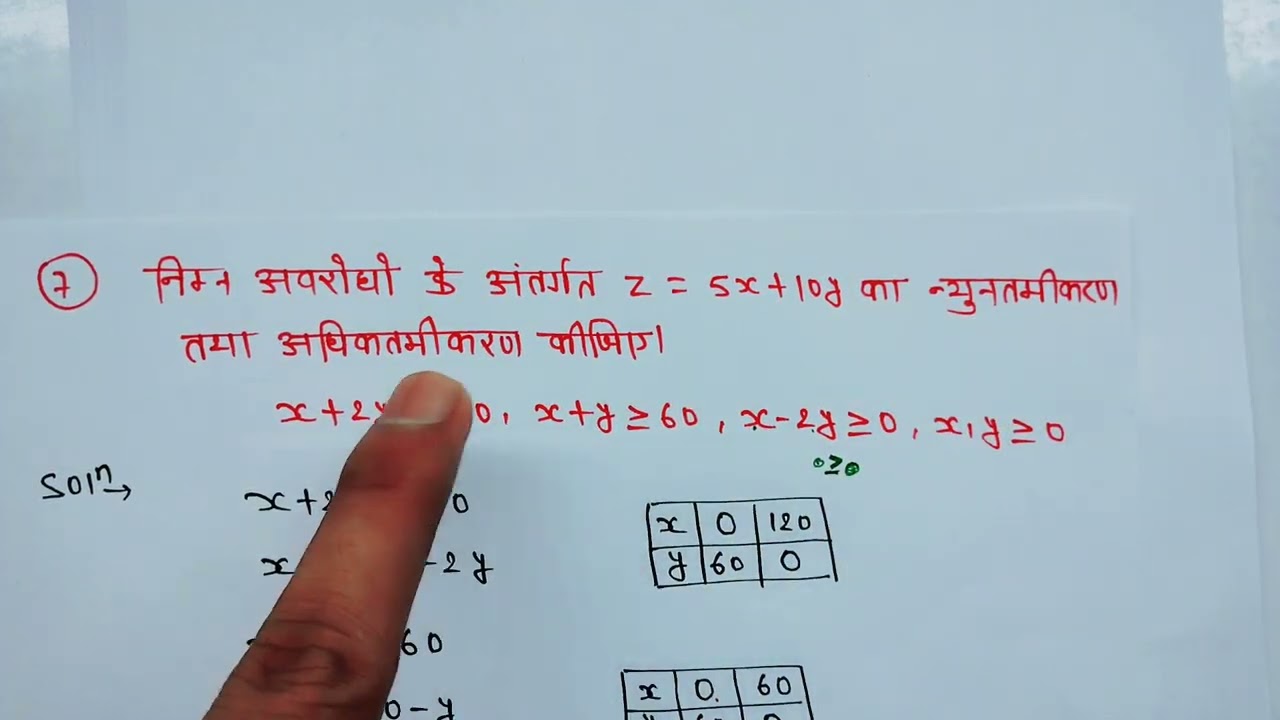 7 निम्न अवरोधो के अंतर्गत z = 5x+10y का न्युनतमीकरण
तथा अधिकतमीकरण कीजिए।
x+2y 0, x+y ≥ 60, x-2y ≥ 0, x, y ≥ 0
0 ≥ 0
Solⁿ→ x+2 0
x 0 120
x -2y
y 60 0
60
x 0 60
0-y